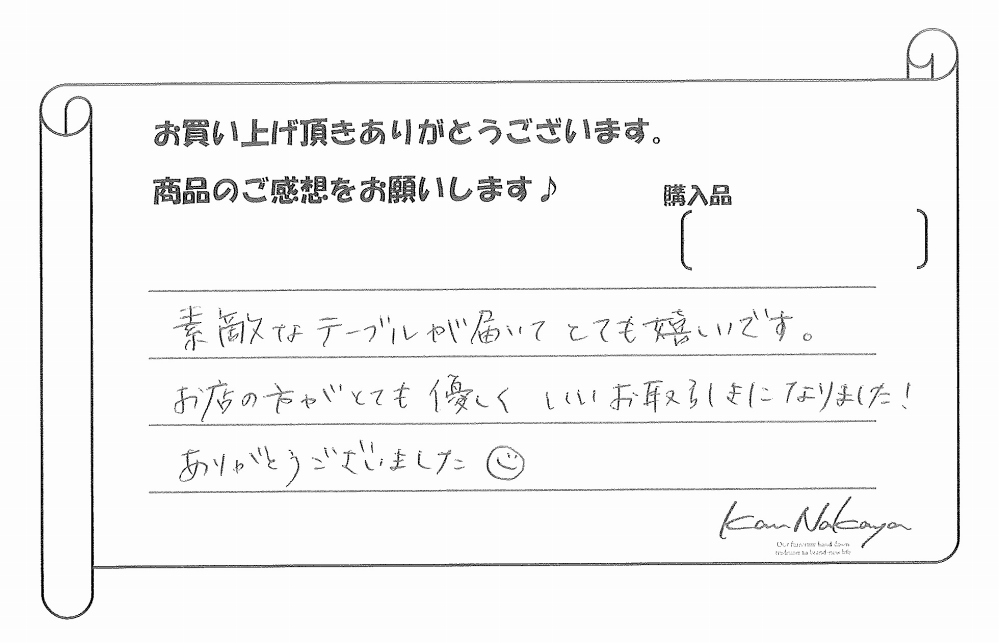 お買い上げ頂きありがとうございます。
商品のご感想をお願いします♪
購入品
素敵なテーブルが届いてとても嬉しいです。
お店の方がとても優しく いいお取引きになりました!
ありがとうございました☺
Kan Nakaya
Our furniture hand down
tradition to brand-new life